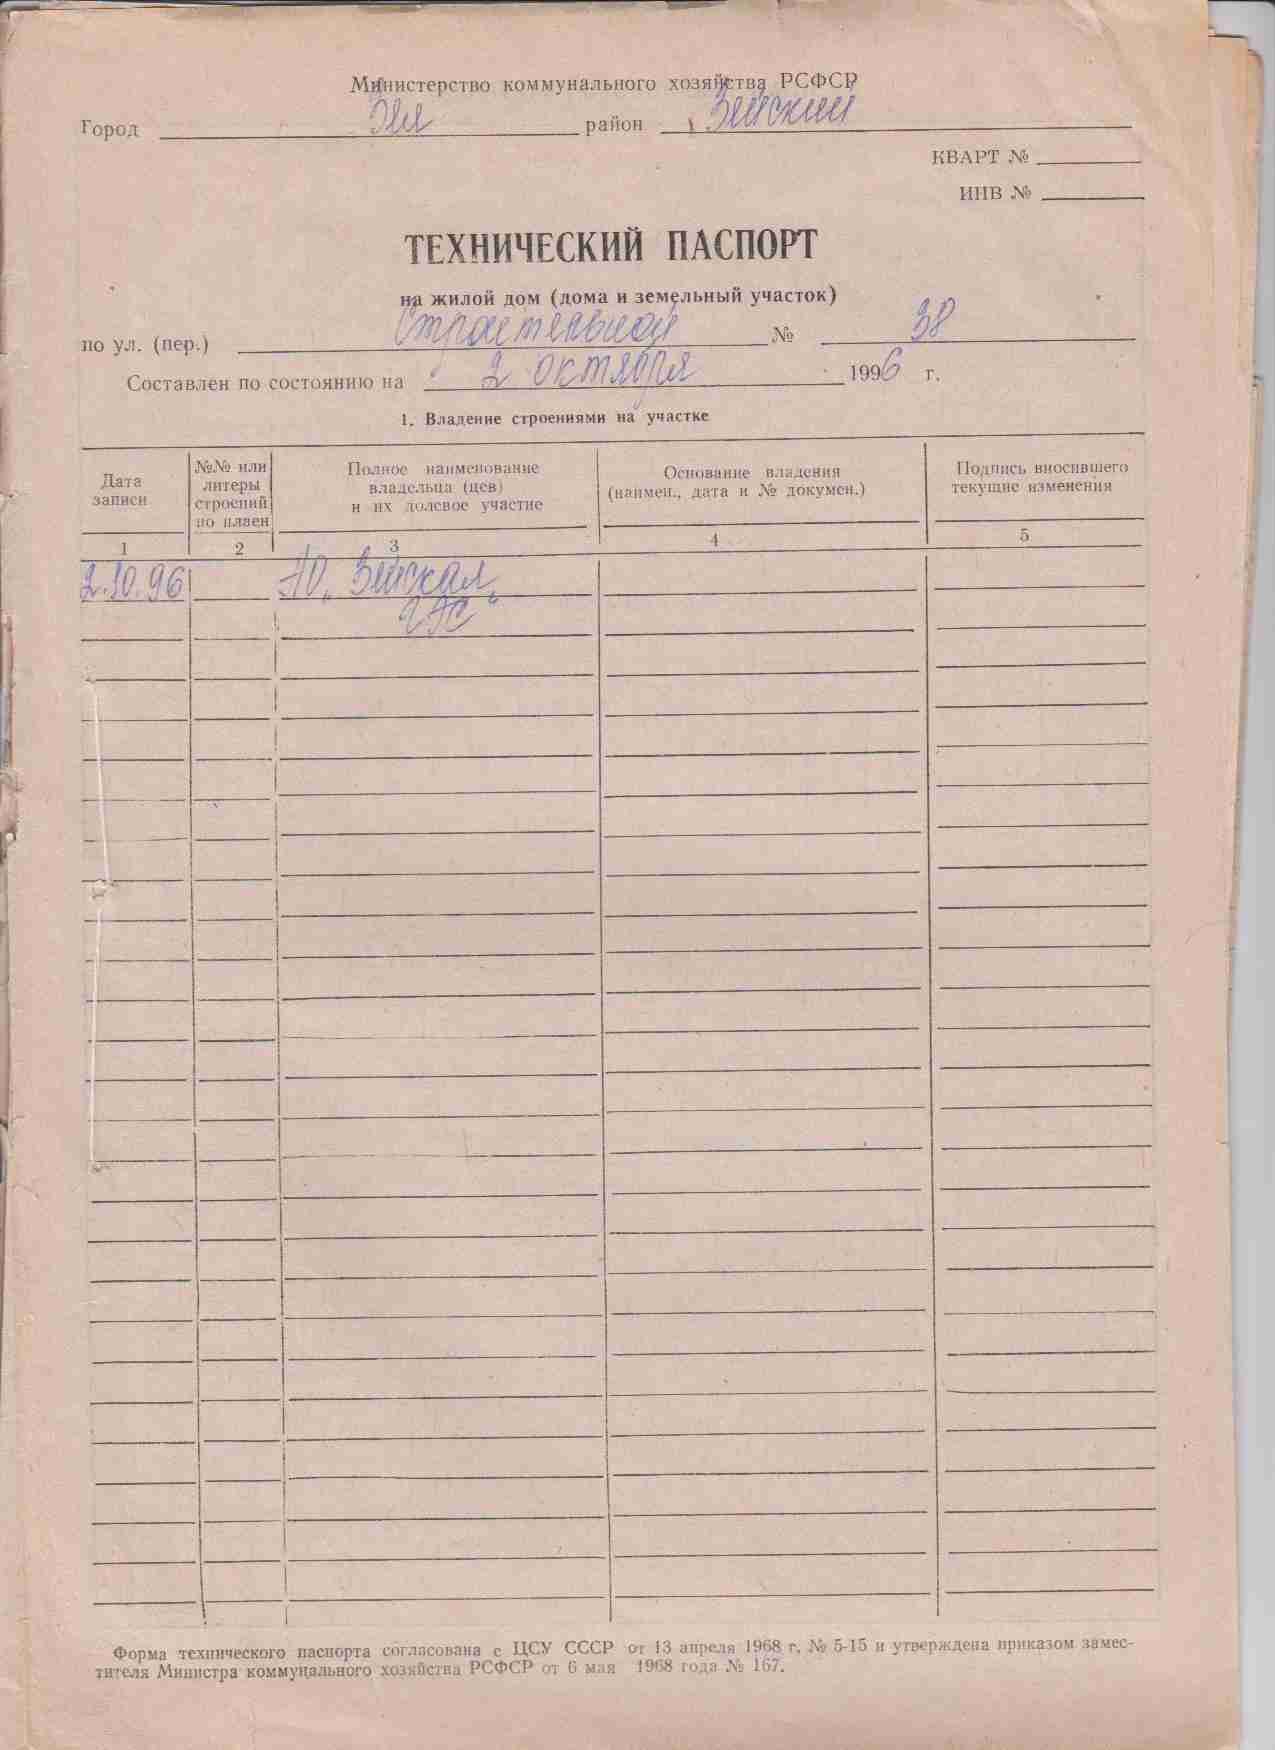 Министерство коммунального хозяйства РСФСР
Город Зея район Зейский
КВАРТ №
ИНВ №
ТЕХНИЧЕСКИЙ ПАСПОРТ
на жилой дом (дома и земельный участок)
по ул. (пер.) Строительной № 38
Составлен по состоянию на 2 октября 1996 г.
1. Владение строениями на участке
Дата записи
№№ или литеры строений по плаен
Полное наименование владельца (цев) и их долевое участие
Основание владения (наимен., дата и № докумен.)
Подпись вносившего текущие изменения
1 2 3 4 5
2.10.96 АО „Зейская
ГЭС“
Форма технического паспорта согласована с ЦСУ СССР от 13 апреля 1968 г. № 5-15 и утверждена приказом замес-
тителя Министра коммунального хозяйства РСФСР от 6 мая 1968 года № 167.